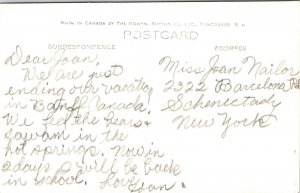 MADE IN CANADA BY THE GOWEN, SUTTON CO. LTD., VANCOUVER, B.C.
POSTCARD
CORRESPONDENCE
ADDRESS
Dear Joan,
We are just
ending our vacation
in Banff Canada,
We fed the bears &
swam in the
hot springs. Now in
2 days I will be back
in school. Love
Joan.
Miss Joan Nailor
2322 Barcelona Rd
Schenectady
New York